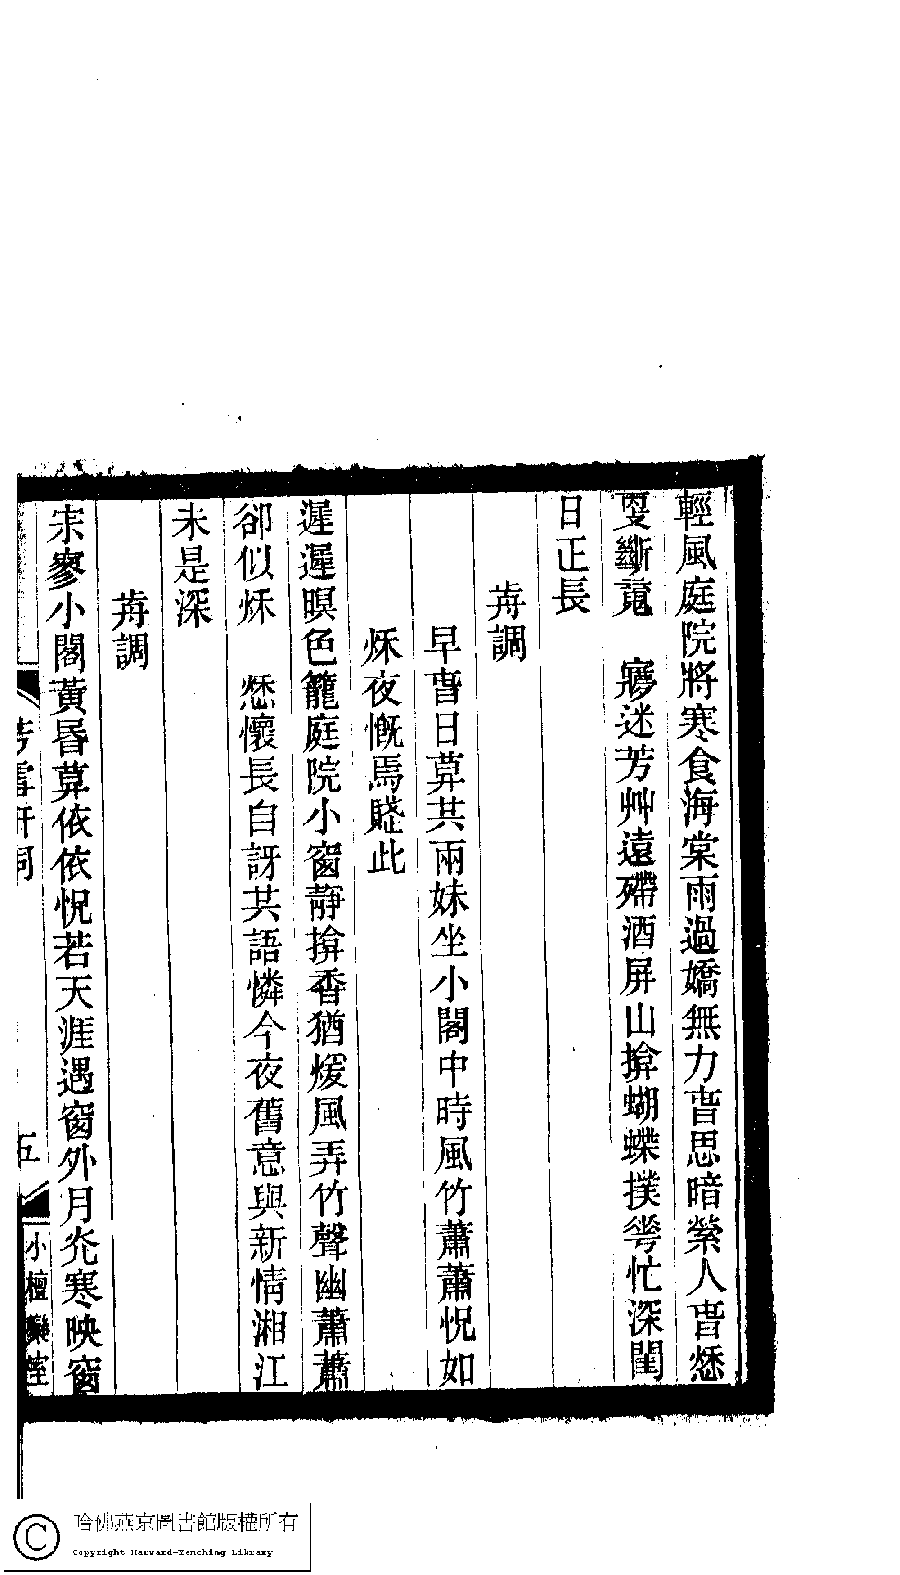 輕風庭院將寒食海棠雨過嬌無力旾思暗縈人旾愁
雙斷䰟　㝱迷芳艸遠殢酒屏山揜蝴蝶撲蕚忙深閨
日正長
歬調
早旾日莫共兩妹坐小閣中時風竹蕭蕭怳如
烁夜慨焉賦此
遲遲暝色籠庭院小窗靜揜香猶煖風弄竹聲幽蕭蕭
卻似烁　愁懷長自訝共語憐今夜舊意與新情湘江
未是深
歬調
宋寥小閣黃昏莫依依怳若天涯遇窗外月灮寒映窗
芳雪軒詞
五
小檀欒室
哈佛燕京圖書館版權所有
Copyright Harvard-Yenching Library